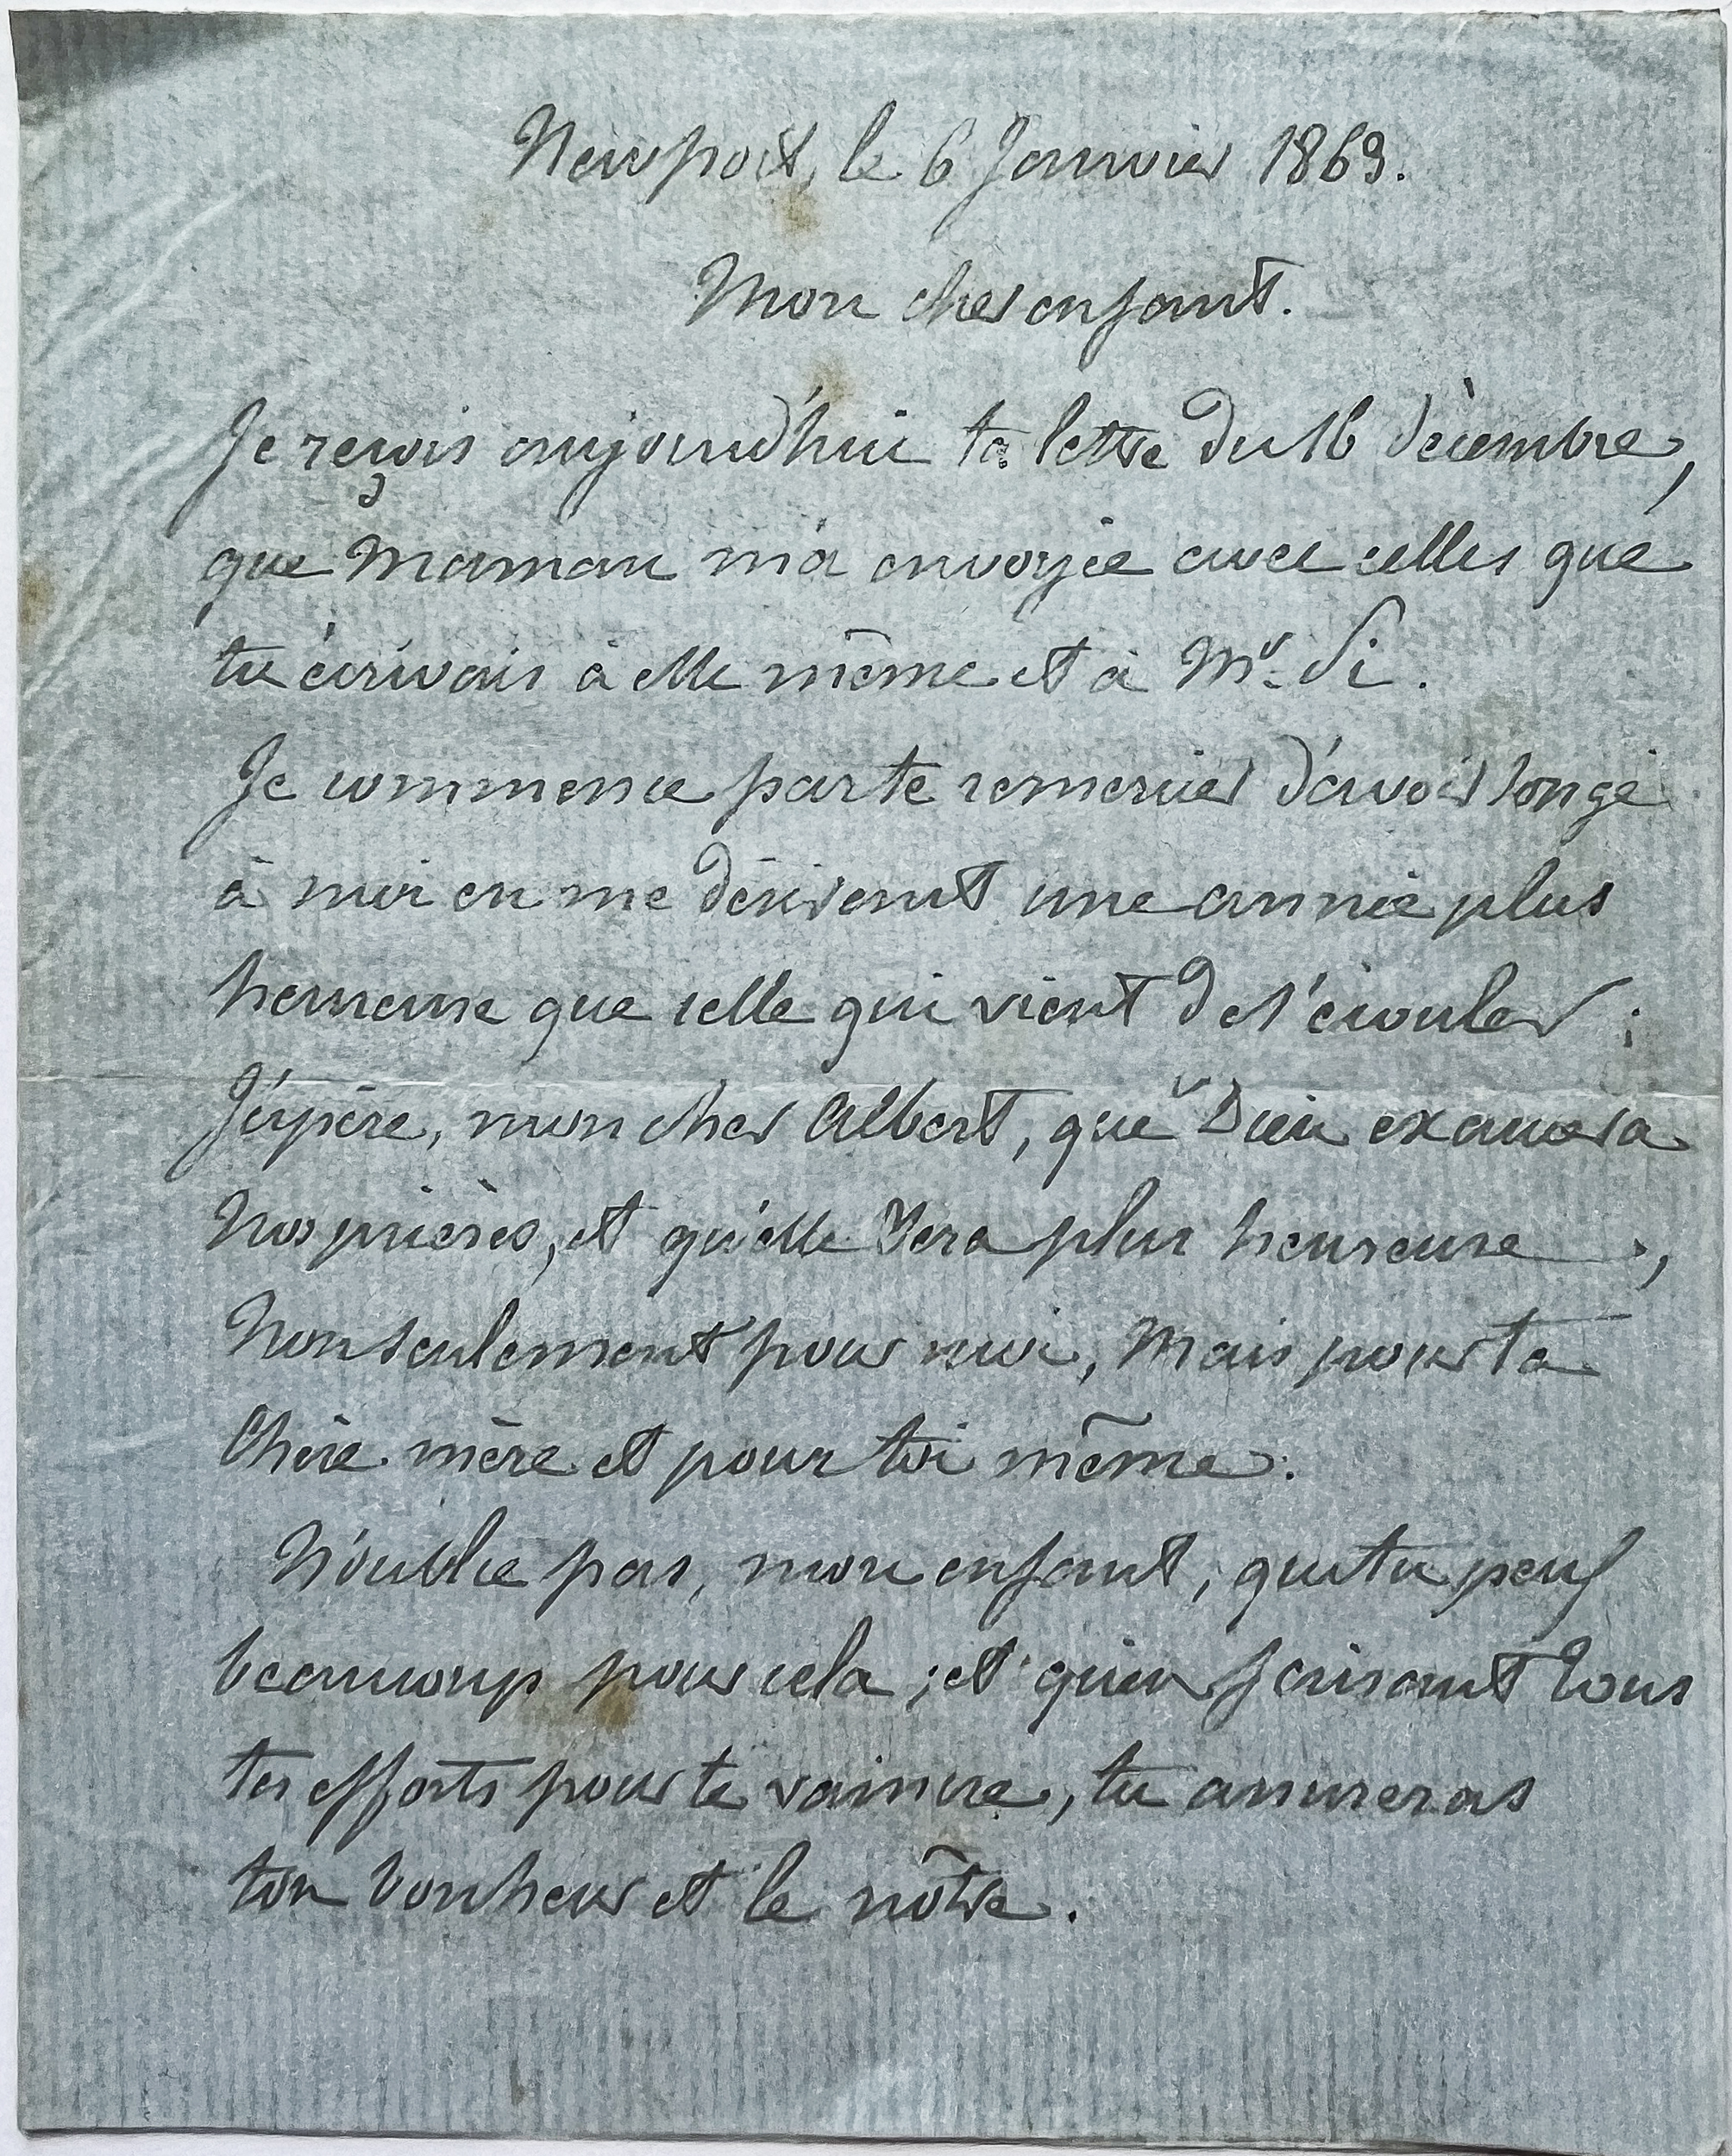 Newport, le 6 Janvier 1869.
Mon cher enfant.
Je reçois aujourd'hui ta lettre du 16 décembre,
que Maman m'a envoyée avec celles que
tu écrivais à elle même et à Mr. Si.
Je commence par te remercier d'avoir songé
à moi en me désirant une année plus
heureuse que celle qui vient de s'écouler ;
J'éspère, mon cher Albert, que Dieu exaucera
Nos prières, et qu'elle sera plus heureuse,
Non seulement pour moi, Mais pour ta
Chère mère et pour toi même.
N'oublie pas, mon enfant, que tu peux
beaucoup pour cela ; et qu'en faisant tous
tes efforts pour te vaincre, tu assureras
ton bonheur et le nôtre.